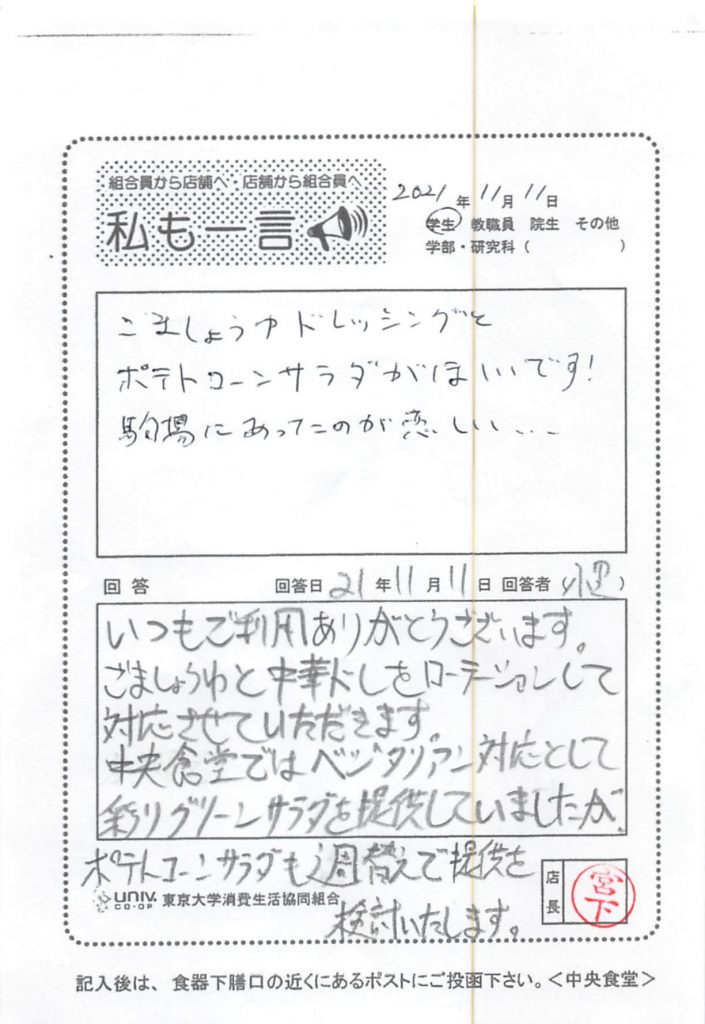 組合員から店舗へ・店舗から組合員へ
私も一言
2021年11月11日
学生 教職員 院生 その他
学部・研究科( )
ごましょうゆドレッシングと
ポテトコーンサラダがほしいです!
駒場にあったのが恋しい...
回答 回答日21年11月11日 回答者( )
いつもご利用ありがとうございます。
ごましょうゆと中華ドレをローテーションして
対応させていただきます。
中央食堂ではベジタリアン対応として
彩りグリーンサラダを提供していましたが、
ポテトコーンサラダも週替えで提供を
検討いたします。
UNIV. CO-OP 東京大学消費生活協同組合
店長 宮下
記入後は、食器下膳口の近くにあるポストにご投函下さい。<中央食堂>